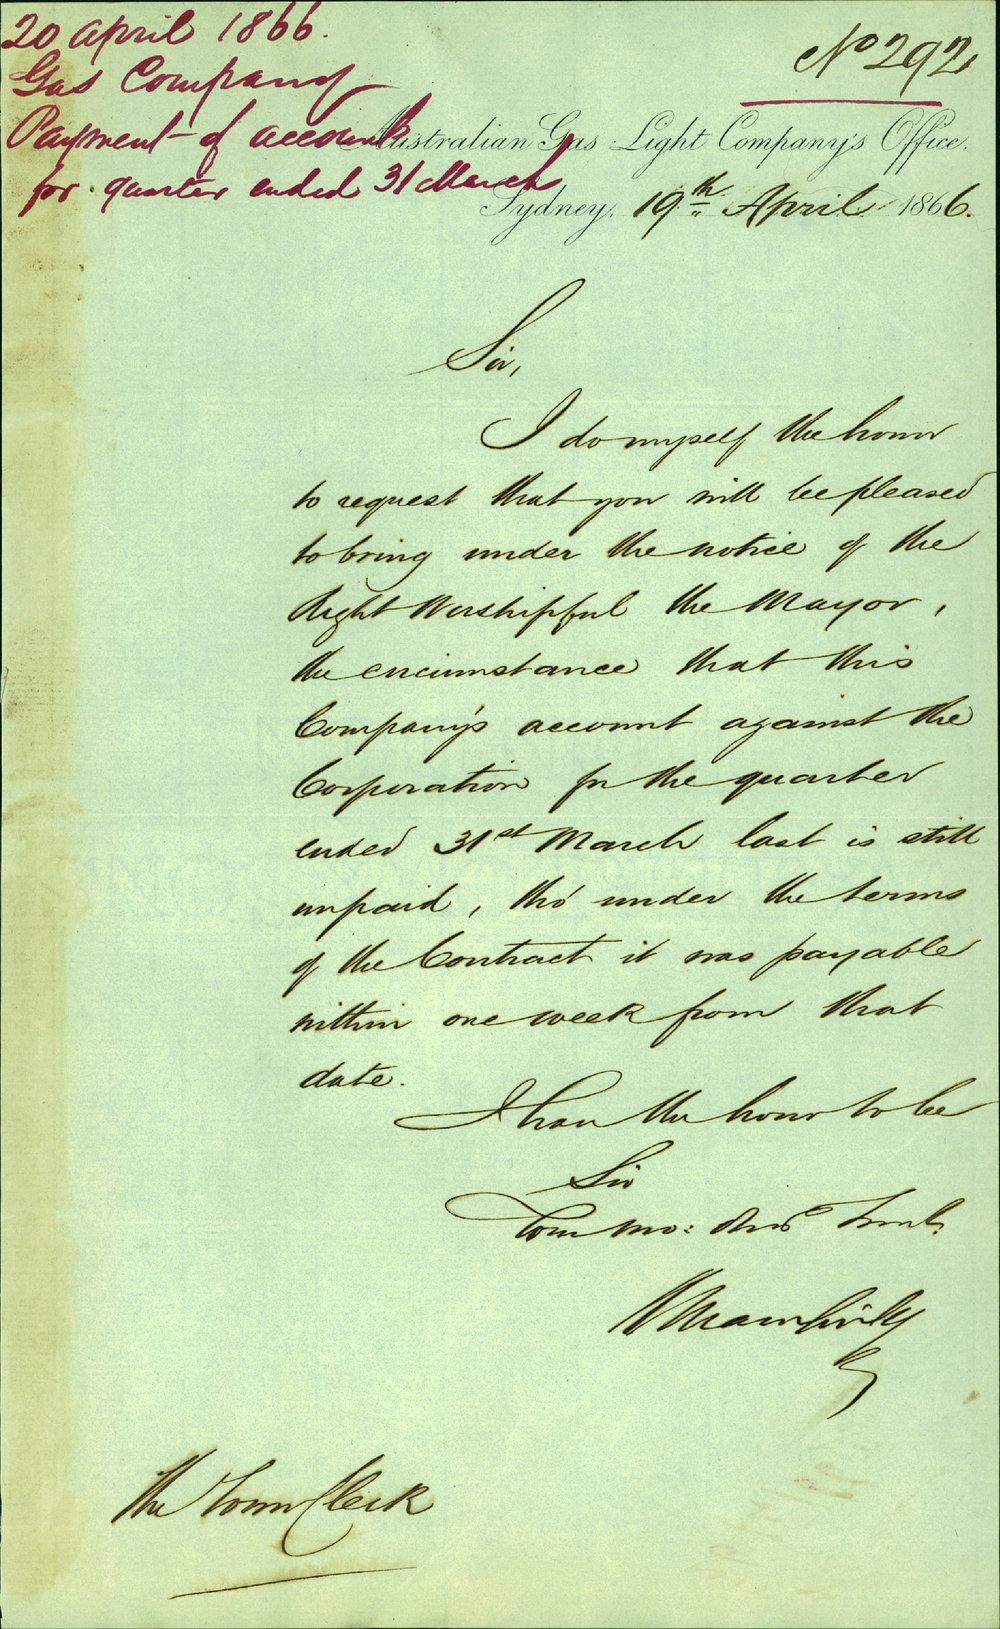 20 April 1866.
Gas Company
Payment of account
for quarter ended 31 March
No 292
Australian Gas Light Company's Office.
Sydney, 19th April 1866.
Sir,
I do myself the honor
to request that you will be pleased
to bring under the notice of the
Right Worshipful the Mayor,
the circumstance that this
Company's account against the
Corporation for the quarter
ended 31st March last is still
unpaid, tho' under the terms
of the Contract it was payable
within one week from that
date.
I have the honor to be
Sir
Your mo: Obed Servt.
The Town Clerk